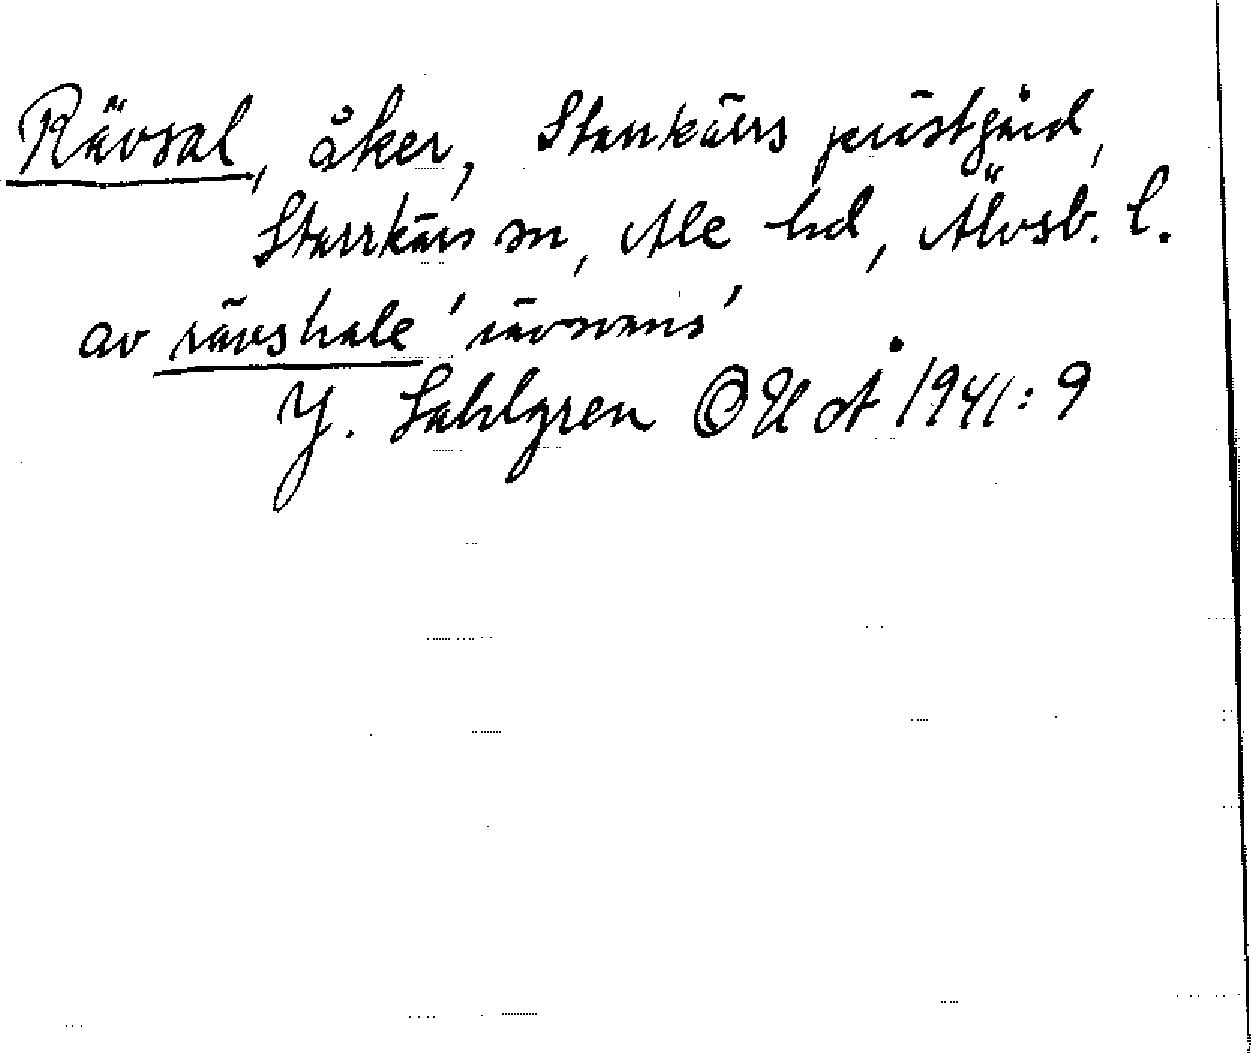 Rävsal, åker, Starrkärrs prästgård,
Starrkärrs sn, Ale hd, Älvsb. l.
av rävshale 'rävsvans'
J. Sahlgren OUoÅ 1941: 9